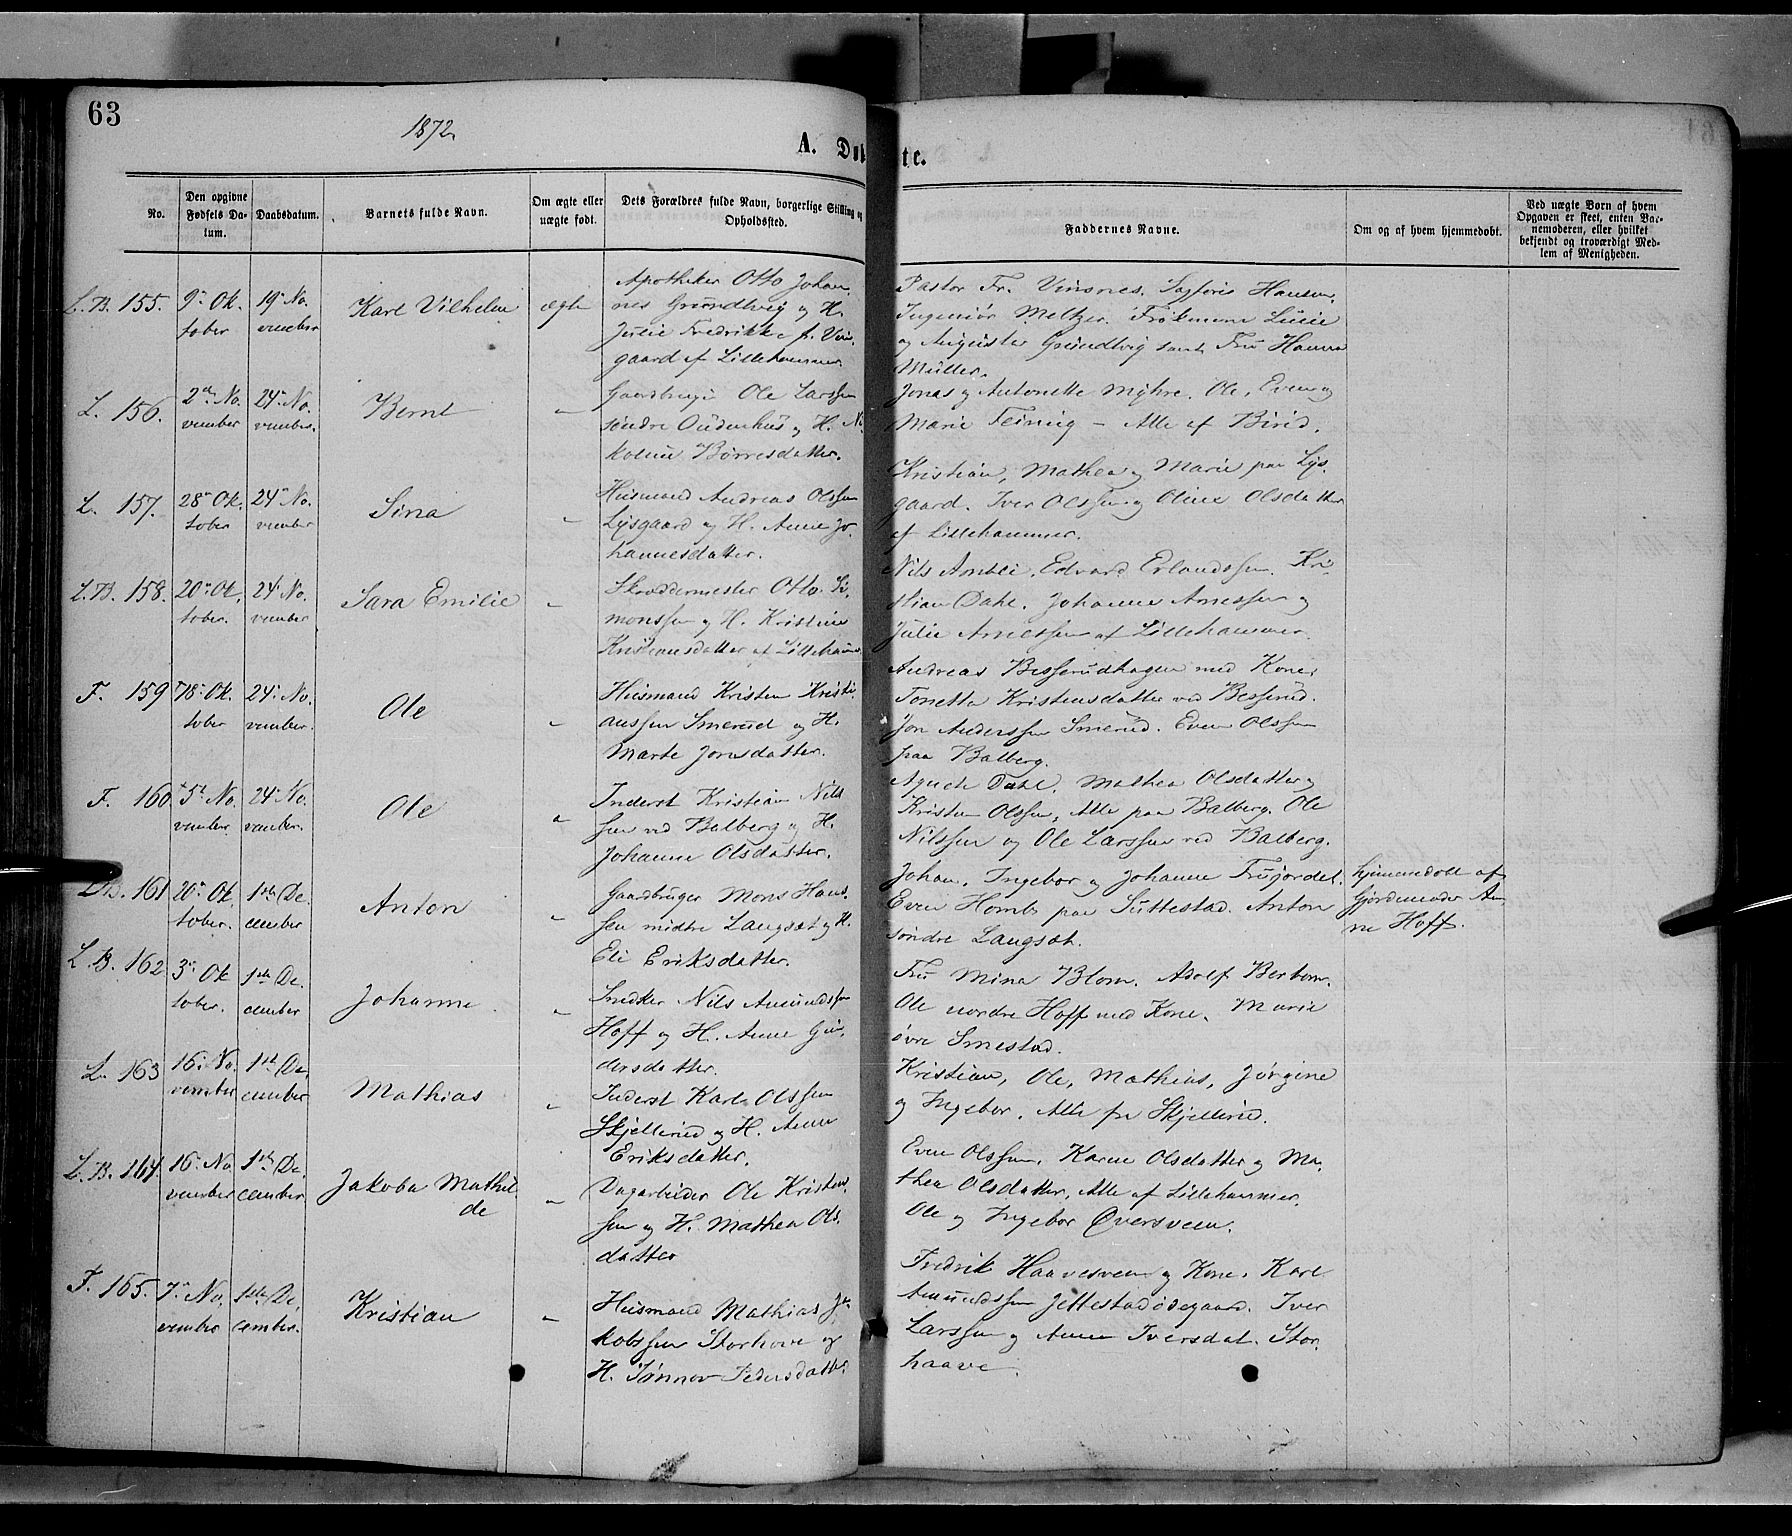 63
1872.
A. Døbte.
No.
Den opgivne Fødsels Datum.
Daabsdatum.
Barnets fulde Navn.
Om ægte eller uægte født.
Dets Forældres fulde Navn, borgerlige Stilling og Opholdssted.
Faddernes Navne.
Om og af hvem hjemmedøbt.
Ved uægte Børn af hvem Opgaven er skeet, enten Barnemoderen, eller hvilket bekjendt og troværdigt Medlem af Menigheden.
L.B. 155. 9de Oktober 19de November Karl Vilhelm ægte
Apotheker Otto Johan-
nes Grundtvig og H.
Julie Fredrikke f. Vin-
gaard af Lillehammer
Pastor Fr. Vinsnes. Sagføris Hansen.
Ingeniør Meltzer. Frøknerne Lucie
og Auguste Grundtvig samt Fru Hanna
Müller.
L. 156. 2den November 24de November. Bernt "
Gaardbruger Ole Larssen
søndre Oudenhus og H. Ni-
koline Børresdatter.
Jonas og Antonette Myhre. Ole, Even og
Marie Feiring – Alle af Birid.
L. 157. 28de Oktober 24de November Sina "
Husmand Andreas Olssen
Lysgaard og H. Anne Jo-
hannesdatter.
Kristian, Mathea og Marie paa Lys-
gaard. Iver Olssen og Oline Olsdatter
af Lillehammer.
L.B. 158. 20de Oktober. 24de November Sara Emilie "
Skræddermester Otto Si-
monssen og H. Kristine
Kristensdatter af Lillehammer
Nils Ambli, Edvard Erlandssen. Kri-
stian Dahl. Johanne Arnessen og
Julie Arnessen af Lillehammer.
F. 159 78de Oktober 24de November. Ole "
Husmand Kristen Kristi-
anssen Smerud og H.
Marte Jonsdatter.
Andreas Besserudhagen med Kone.
Tonetta Kristensdatter ved Besserud.
Jon Anderssen Smerud. Even Olssen
paa Balberg.
F. 160 5te November. 24de November. Ole "
Inderst Kristian Nils-
sen ved Balberg og H.
Johanne Olsdatter.
Dahl. Mathea Olsdatter og
Kristen Olssen, Alle paa Balberg. Ole
Nilssen og Ole Larssen ved Balberg.
161 20de Oktober. 1ste December Anton "
Gaardbruger Mons Hans-
sen midtre Langsæt og H.
Eli Eriksdatter.
Johan, Ingebor og Johanne Trujordet.
Even Homb paa Suttestad. Anton
søndre Langsæt.
hjemmedøbt af
Gjordemoder An-
ne Hoff.
L.B. 162 3die Oktober. 1ste December Johanne "
Snedker Nils Amundssen
Hoff og H. Anne Gu-
dersdatter.
Fru Mina Blom. Adolf Berbom.
Ole nordre Hoff med Kone. Marie
øvre Smestad.
L. 163 16de November 1ste December Mathias "
Inderst Karl Olssen
Skjellerud og H. Anne
Eriksdatter.
Kristian, Ole, Mathias, Jørgine
og Ingebor. Alle fra Skjellerud.
L.B. 164. 16de November 1ste December Jakoba Mathil-
de "
Dagarbeider Ole Kristens-
sen og H. Mathea Ols-
datter
Even Olssen. Karen Olsdatter og Ma-
thea Olsdatter, Alle af Lillehammer.
Ole og Ingebor Øversveen.
F. 165. 7de November 1ste December. Kristian "
Husmand Mathias Ja-
kobssen Storhove og
H. Tønnov Pedersdatter
Fredrik Haavesveen og Kone. Karl
Amundssen Jettestadødegaard. Iver
Larssen og Anne Iversdat. Stor-
haave.